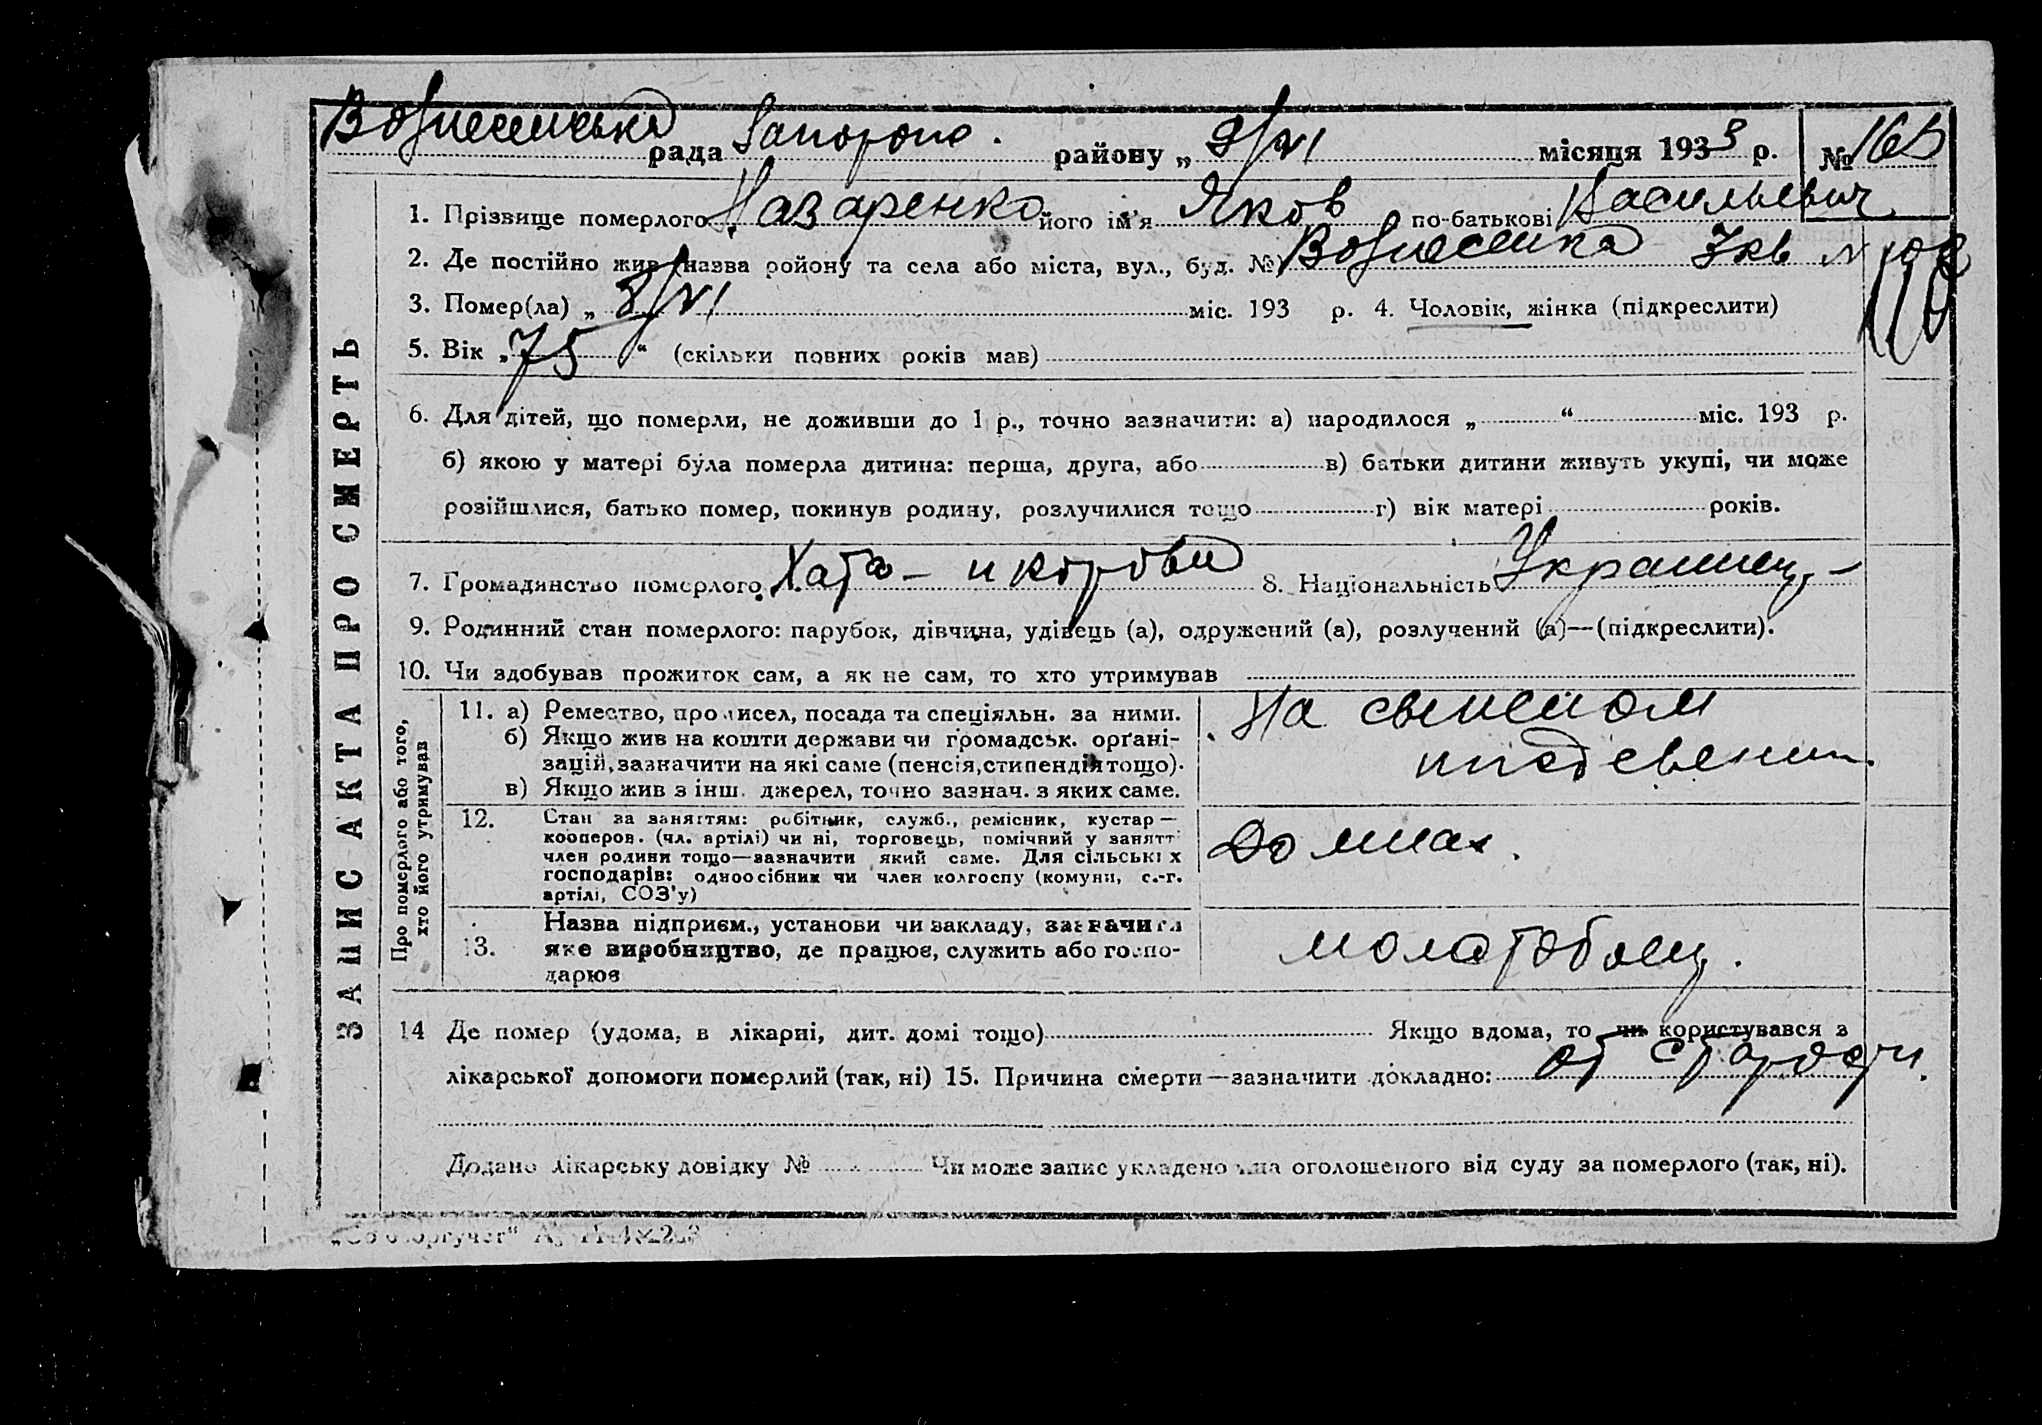 Вознесенська рада Запорож. району „ 9/VI місяця 1933 р. № 165
1. Прізвище померлого Назаренко його ім'я Яков по-батькові Васильевич
2. Де постійно жив (назва ройону та села або міста, вул., буд. №) Вознесенка 7 кв N 108
110
3. Помер(ла) „ 8/VI міс. 193 р. 4. Чоловік, жінка (підкреслити)
5. Вік „ 75 “ (скільки повних років мав)
6. Для дітей, що померли, не доживши до 1 р., точно зазначити: а) народилося „ “ міс. 193 р.
б) якою у матері була померла дитина: перша, друга, або в) батьки дитини живуть укупі, чи може
розійшлися, батько помер, покинув родину, розлучилися тощо г) вік матері років.
7. Громадянство померлого Хата – и корова 8. Національність Украинец –
9. Родинний стан померлого: парубок, дівчина, удівець (а), одружений (а), розлучений (а)—(підкреслити).
10. Чи здобував прожиток сам, а як не сам, то хто утримував
ЗАПИС АКТА ПРО СМЕРТЬ
Про померлого або того,
хто його утримував
11. а) Ремество, промисел, посада та спеціяльн. за ними.
б) Якщо жив на кошти держави чи громадськ. орґані-
зацій, зазначити на які саме (пенсія, стипендія тощо).
в) Якщо жив з інш. джерел, точно зазнач. з яких саме.
На
12. Стан за заняттям: робітник, служб., ремісник, кустар —
кооперов. (чл. артілі) чи ні, торговець, помічний у занятт
член родини тощо—зазначити який саме. Для сільських
господарів: одноосібник чи член колгоспу (комуни, с.-г.
артілі, СОЗ'у)
Домнах.
13. Назва підприєм., установи чи закладу, зазначити
яке виробництво, де працює, служить або госпо-
дарює
молатобоец.
14 Де помер (удома, в лікарні, дит. домі тощо) Якщо вдома, то чи користувався з
лікарської допомоги померлий (так, ні) 15. Причина смерти—зазначити докладно: от старости.
Додано лікарську довідку № Чи може запис укладено на оголошеного від суду за померлого (так, ні).